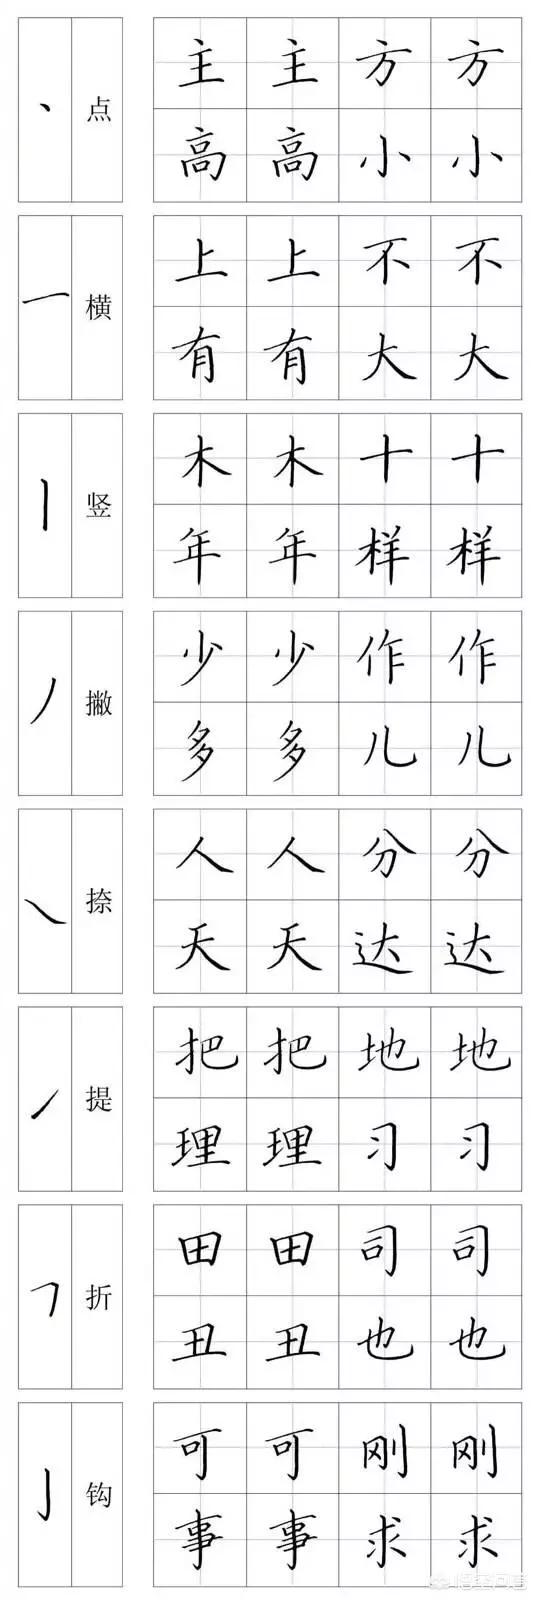 丶 点 主 主 方 方
高 高 小 小
一 横 上 上 不 不
有 有 大 大
丨 竖 木 木 十 十
年 年 样 样
丿 撇 少 少 作 作
多 多 儿 儿
㇏ 捺 人 人 分 分
天 天 达 达
㇀ 提 把 把 地 地
理 理 习 习
㇕ 折 田 田 司 司
丑 丑 也 也
亅 钩 可 可 刚 刚
事 事 求 求
悟空问答